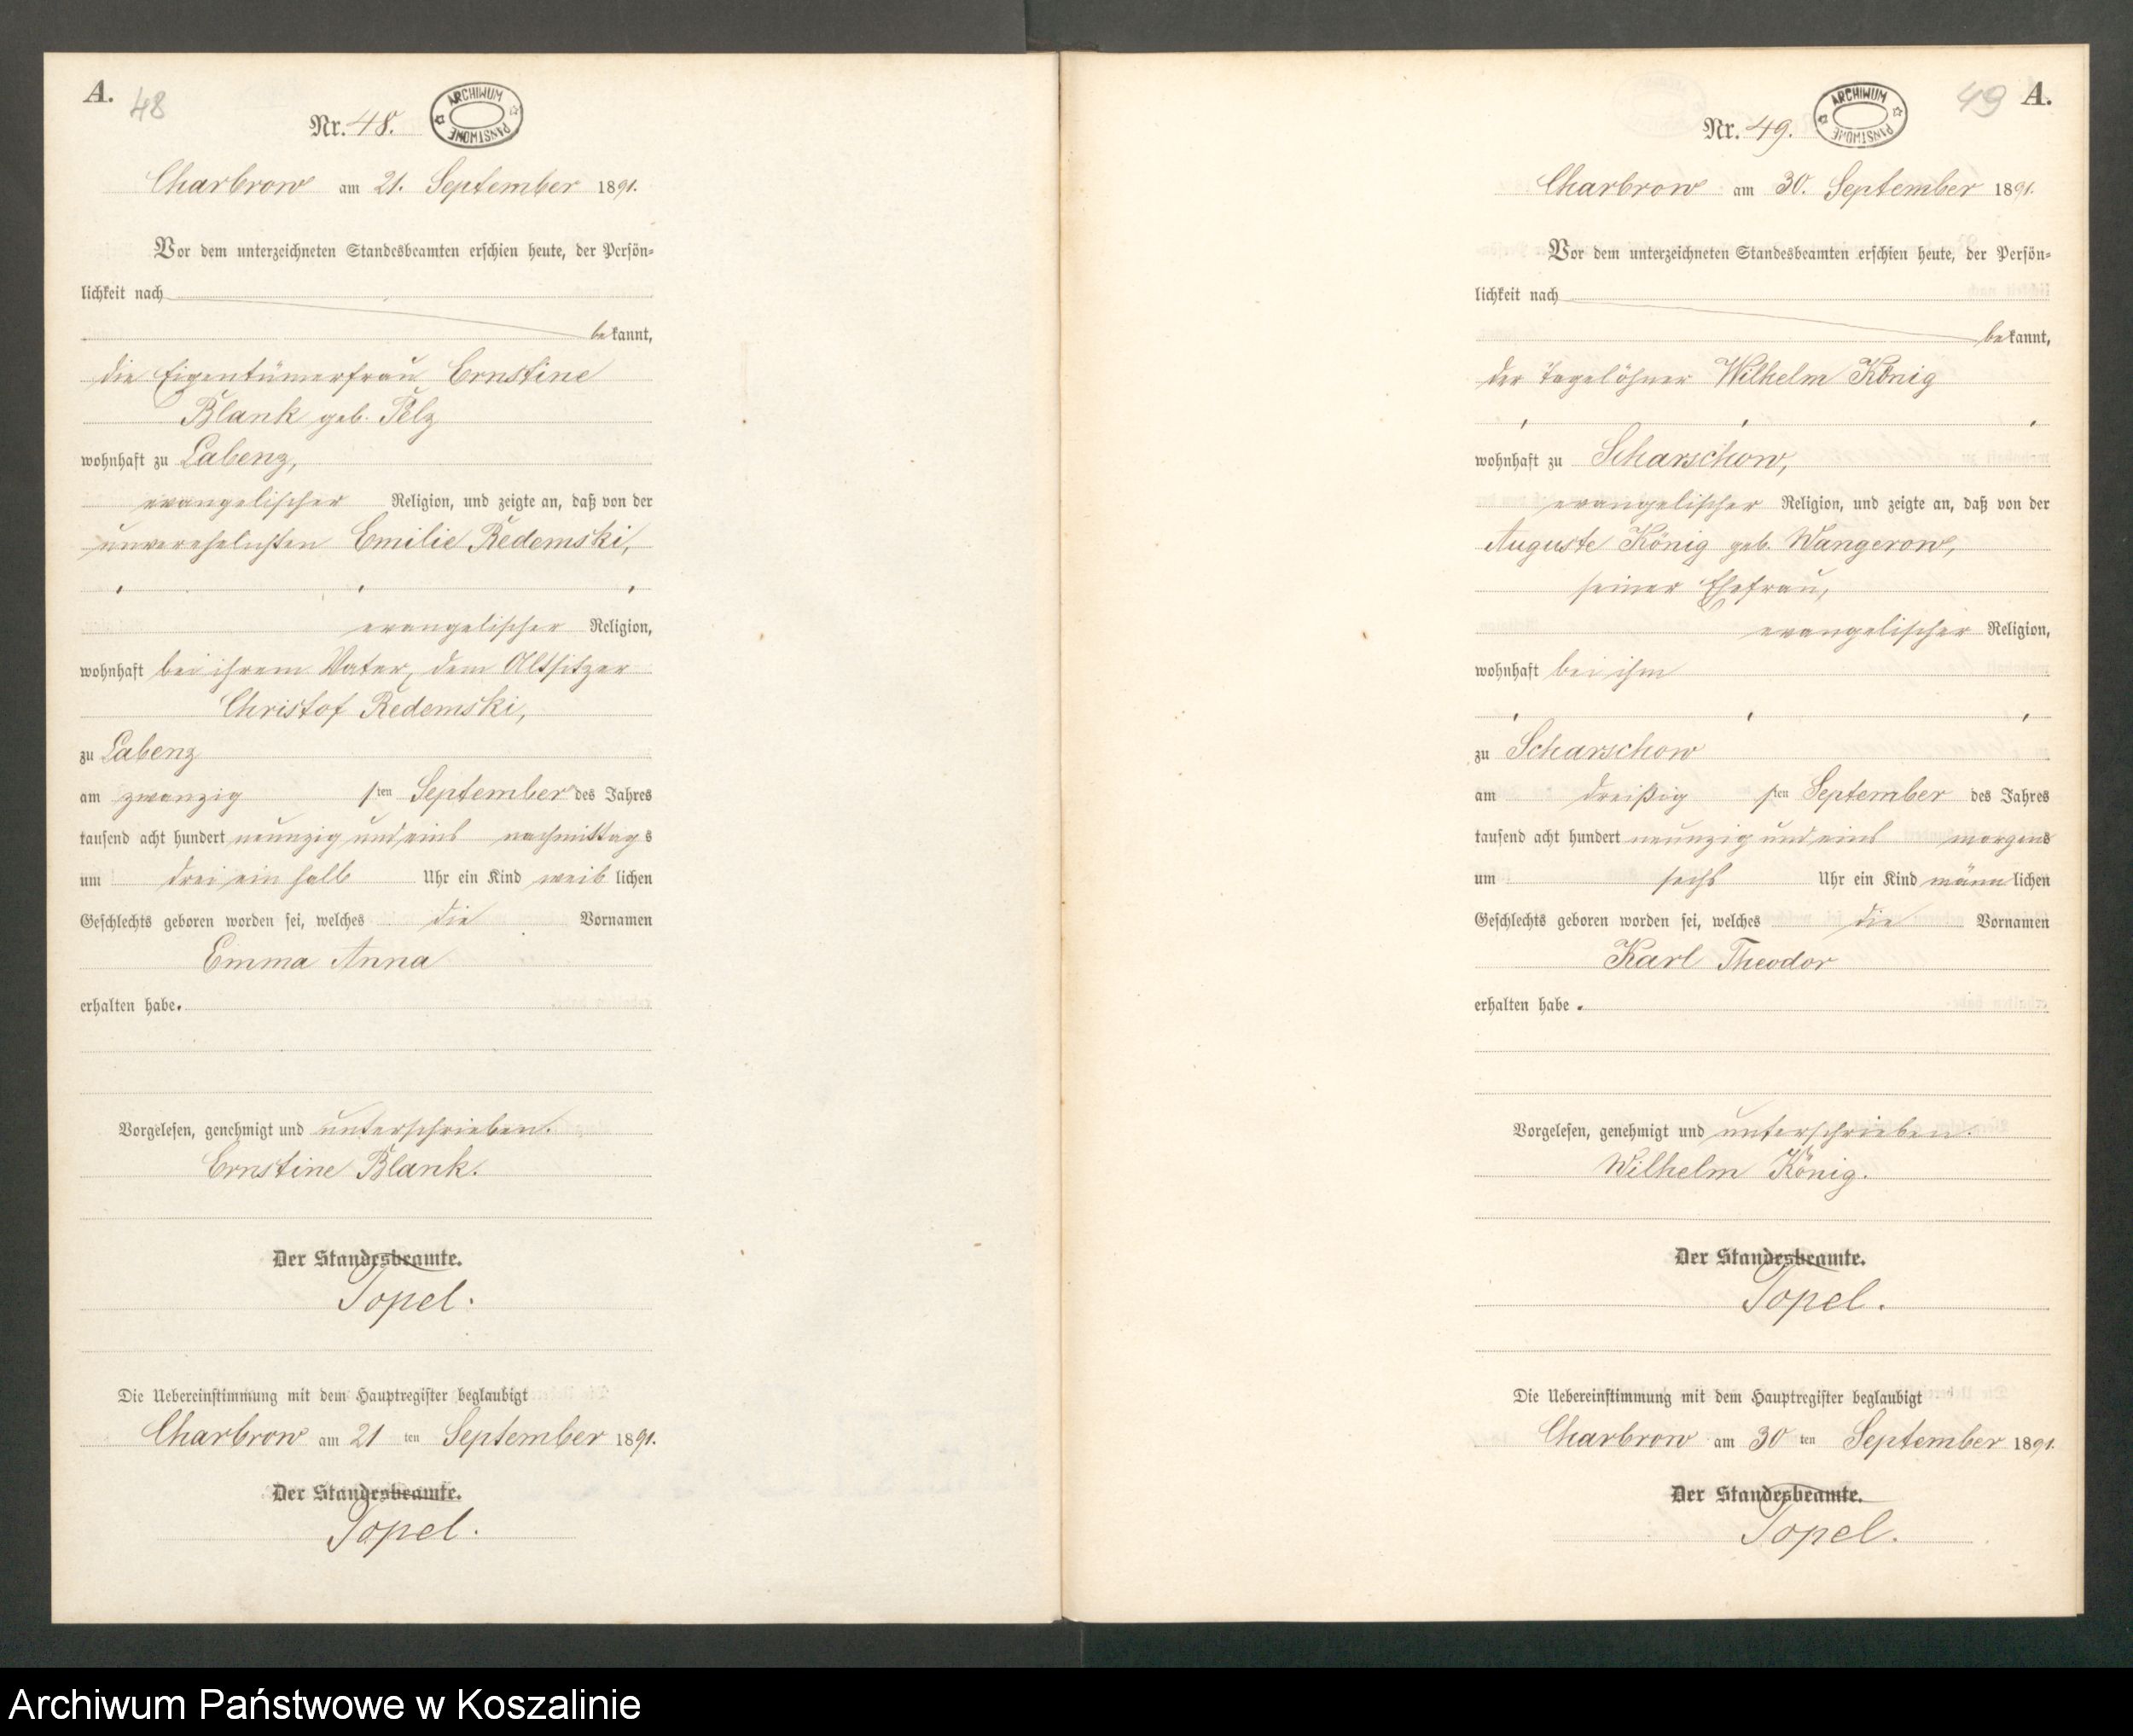 A.
48
Nr. 48.
ARCHIWUM PAŃSTWOWE
Charbrow am 21. September 1891.
Vor dem unterzeichneten Standesbeamten erschien heute, der Persön-
lichkeit nach
bekannt,
die Eigentümerfrau Ernstine
Blank geb. Pelz
wohnhaft zu Labenz,
evangelischer Religion, und zeigte an, daß von der
unverehelichten Emilie Redemski,
evangelischer Religion,
wohnhaft bei ihrem Vater, dem Altsitzer
Christof Redemski,
zu Labenz
am zwanzigsten September des Jahres
tausend acht hundert neunzig und eins nachmittags
um drei ein halb Uhr ein Kind weiblichen
Geschlechts geboren worden sei, welches die Vornamen
Emma Anna
erhalten habe.
Vorgelesen, genehmigt und unterschrieben.
Ernstine Blank.
Der Standesbeamte.
Topel.
Die Uebereinstimmung mit dem Hauptregister beglaubigt
Charbrow am 21ten September 1891.
Der Standesbeamte.
Topel.
49
A.
Nr. 49.
ARCHIWUM PAŃSTWOWE
Charbrow am 30. September 1891.
Vor dem unterzeichneten Standesbeamten erschien heute, der Persön-
lichkeit nach
bekannt,
der Tagelöhner Wilhelm König
wohnhaft zu Scharschow,
evangelischer Religion, und zeigte an, daß von der
Auguste König geb. Wangerow,
seiner Ehefrau,
evangelischer Religion,
wohnhaft bei ihm
zu Scharschow
am dreißigsten September des Jahres
tausend acht hundert neunzig und eins morgens
um sechs Uhr ein Kind männlichen
Geschlechts geboren worden sei, welches die Vornamen
Karl Theodor
erhalten habe.
Vorgelesen, genehmigt und unterschrieben.
Wilhelm König.
Der Standesbeamte.
Topel.
Die Uebereinstimmung mit dem Hauptregister beglaubigt
Charbrow am 30ten September 1891.
Der Standesbeamte.
Topel.
Archiwum Państwowe w Koszalinie